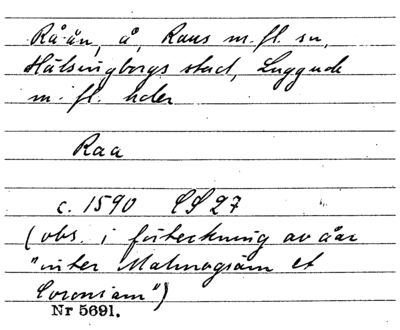 Rå-ån, å, Raus m. fl. sn,
Hälsingborgs stad, Luggude
m. fl. hder
Raa
c. 1590 CS 27
(obs. i förteckning av åar
"inter Malmogiam et
Coroniam")
Nr 5691.